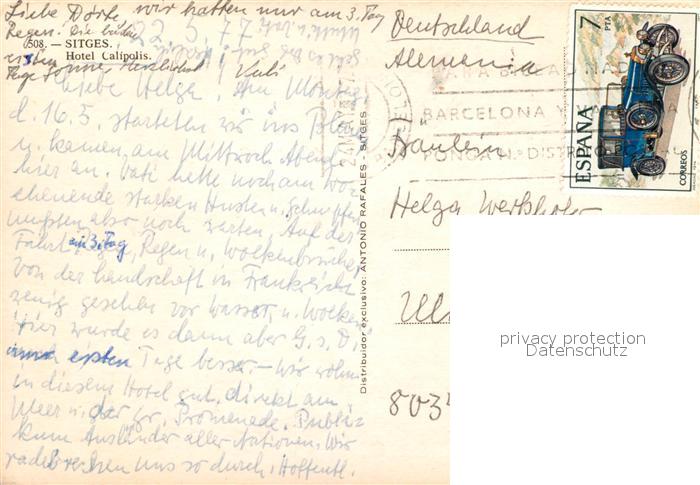 Liebe Dörte, wir hatten nur am 3. Tag
Regen! Die beiden
ersten
Tage Sonne, Herzlichst
508. — SITGES.
Hotel Calípolis.
22.5.77
Liebe Helga, Am Montag
d. 16.5. starteten wir ins Blaue
u. kamen am Mittwoch Abend
hier an. Vati hatte noch am Wo-
chenende starken Husten u. Schnupfen
mußten also noch warten. Auf der
Fahrt am 3. Tag Regen u. Wolkenbrüche
von der Landschaft in Frankreich
wenig gesehen vor Wasser u. Wolken
Hier wurde es dann aber G. s. D.
ersten Tage besser. – Wir wohnen
in diesem Hotel gut, direkt am
Meer u. der gr. Promenade. Publi-
kum Ausländer aller Nationen. Wir
radebrechen uns so durch. Hoffentl.
Distribuidor exclusivo: ANTONIO RAFALES - SITGES
Deutschland
Alemania
Fräulein
Helga
803
BARCELONA Y
PONGA N.º DISTRITO
7
PTA
ESPAÑA
CORREOS
privacy protection
Datenschutz